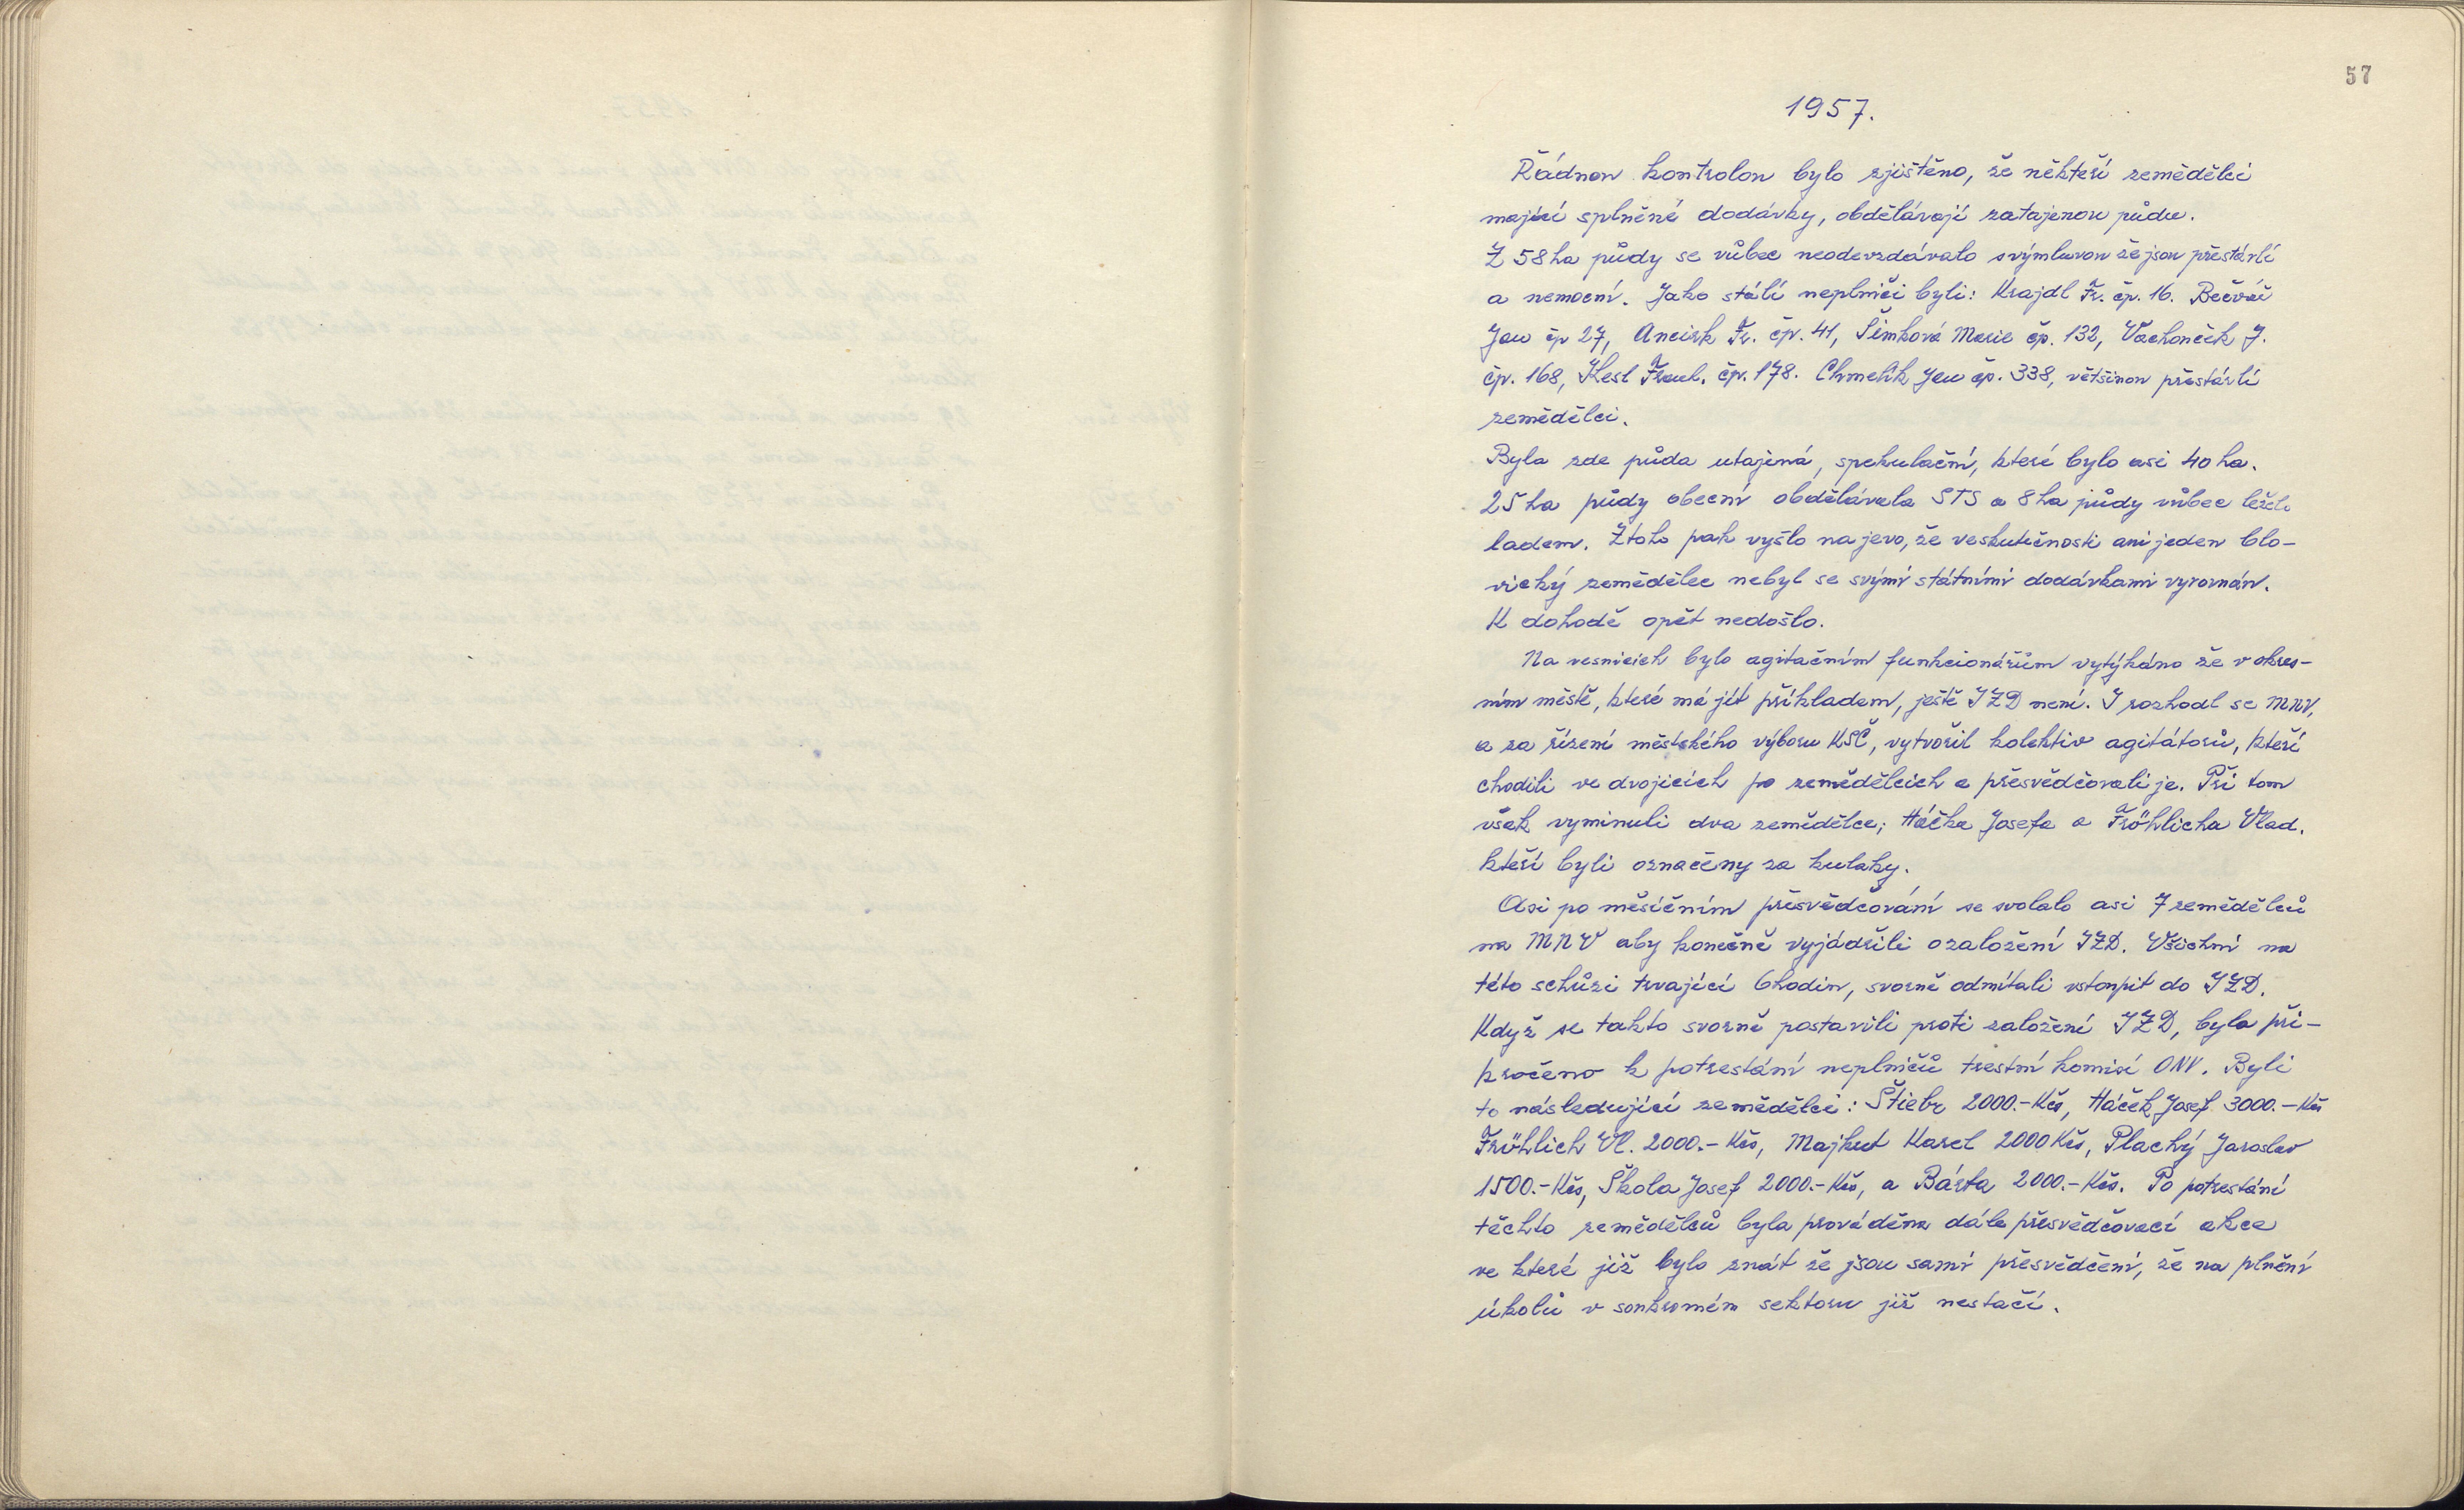 57
1957.
Řádnou kontrolou bylo zjištěno, že někteří zemědělci
mající splněné dodávky, obdělávají zatajenou půdu.
Z 58 ha půdy se vůbec neodevzdávalo svýmluvou že jsou přestárlí
a nemocní. Jako stálí neplniči byli: Krajdl Fr. čp. 16. Bečvář
Jan čp 27, Aneisk Fr. čp. 41, Šimková Marie čp. 132, Vachoušek J.
čp. 168, Kesl Frant. čp. 178. Chmelík Jan čp. 338, většinou přestárlí
zemědělci.
Byla zde půda utajená, spekulační, které bylo asi 40 ha.
25 ha půdy obecní obdělávala STS a 8 ha půdy vůbec leželo
ladem. Ztoho pak vyšlo na jevo, že veskutečnosti ani jeden blo-
vický zemědělec nebyl se svými státními dodávkami vyrovnán.
K dohodě opět nedošlo.
Na vesnicích bylo agitačním funkcionářům vytýkáno že v okres-
ním městě, které má jít příkladem, ještě JZD není. I rozhodl se MNV,
a za řízení městského výboru KSČ, vytvořil kolektiv agitátorů, kteří
chodili ve dvojicích po zemědělcích a přesvědčovali je. Při tom
však vyminuli dva zemědělce; Háčka Josefa a Fröhlicha Vlad.
kteří byli označeny za kulaky.
Asi po měsíčním přesvědčování se svolalo asi 7 zemědělců
na MNV aby konečně vyjádřili o založení JZD. Všichni na
této schůzi trvající 6 hodin, svorně odmítali vstoupit do JZD.
Když se takto svorně postavili proti založení JZD, byla při-
kročeno k potrestání neplničů trestní komisí ONV. Byli
to následující zemědělci: Štiebr 2000.- Kčs, Háček Josef 3000.- Kčs
Fröhlich Vl. 2000.- Kčs, Majkut Karel 2000 Kčs, Plachý Jaroslav
1500.- Kčs, Škola Josef 2000.- Kčs, a Bárta 2000.- Kčs. Po potrestání
těchto zemědělců byla prováděna dále přesvědčovací akce
ve které již bylo znát že jsou sami přesvědčení, že na plnění
úkolů v soukromém sektoru již nestačí.